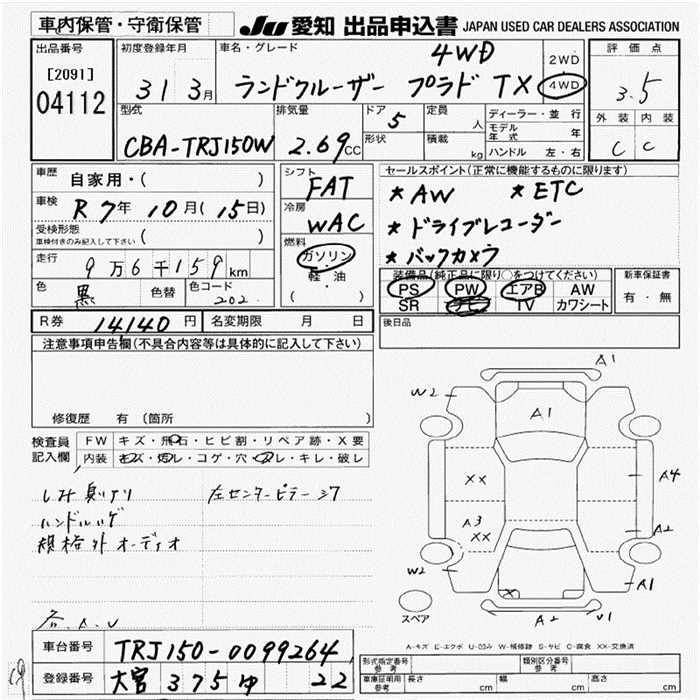 車内保管・守衛保管
JU 愛知 出品申込書 JAPAN USED CAR DEALERS ASSOCIATION
出品番号
[2091]
04112
初度登録年月
31 3月
車名・グレード
4WD
ランドクルーザー プラド TX
2WD
4WD
評価点
3.5
外装 内装
C C
型式
CBA-TRJ150W
排気量
2.69cc
ドア
5
形状
定員
人
積載
kg
ディーラー・並行
モデル年式 年
ハンドル 左・右
車歴
自家用・( )
車検
R7年10月(15日)
受検形態
車検付きのみ記入して下さい ( )
走行
9万6千159km
色
黒
色替
色コード
202
シフト
FAT
冷房
WAC
燃料
ガソリン
軽・油
( )
セールスポイント(正常に機能するものに限ります)
*AW *ETC
*ドライブレコーダー
*バックカメラ
装備品(純正品に限り○をつけてください)
PS PW エアB AW
SR ナビ TV カワシート
新車保証書
有・無
R券 14140円
名変期限 月 日
後日品
注意事項申告欄(不具合内容等は具体的に記入して下さい)
修復歴 有 (箇所 )
検査員
記入欄
FW キズ・飛石・ヒビ割・リペア跡・X要
内装 キズ・汚レ・コゲ・穴・スレ・キレ・破レ
シミ 臭い
左センターピラー
ハンドル
規格外オーディオ
A1
W2
A1
XX
A4
A3
XX
A2
W2
X
A1
スペア
A2
U1
A-キズ E-エクボ U-凹み W-補修跡 S-サビ C-腐食 XX-交換済
車台番号 TRJ150-0099264
登録番号 大宮 375 ゆ 22
形式指定番号
参考
類別区分番号
参考
車庫証明用
参考
長さ cm
幅 cm
高さ cm